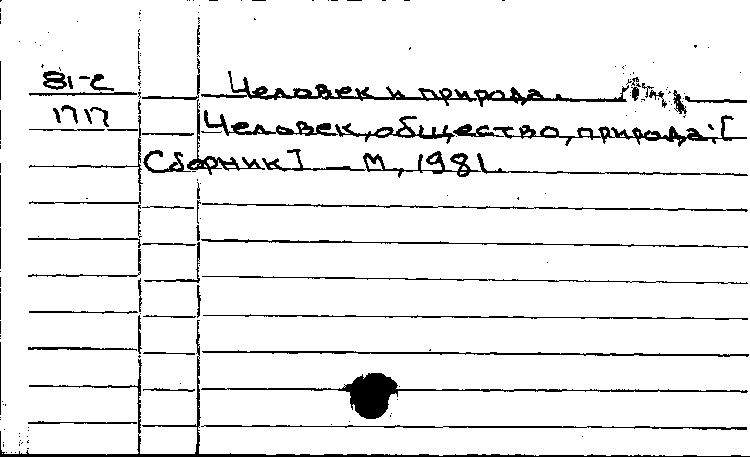 81-2 Человек и природа.
1717 Человек, общество, природа: [
Сборник] — М, 1981.